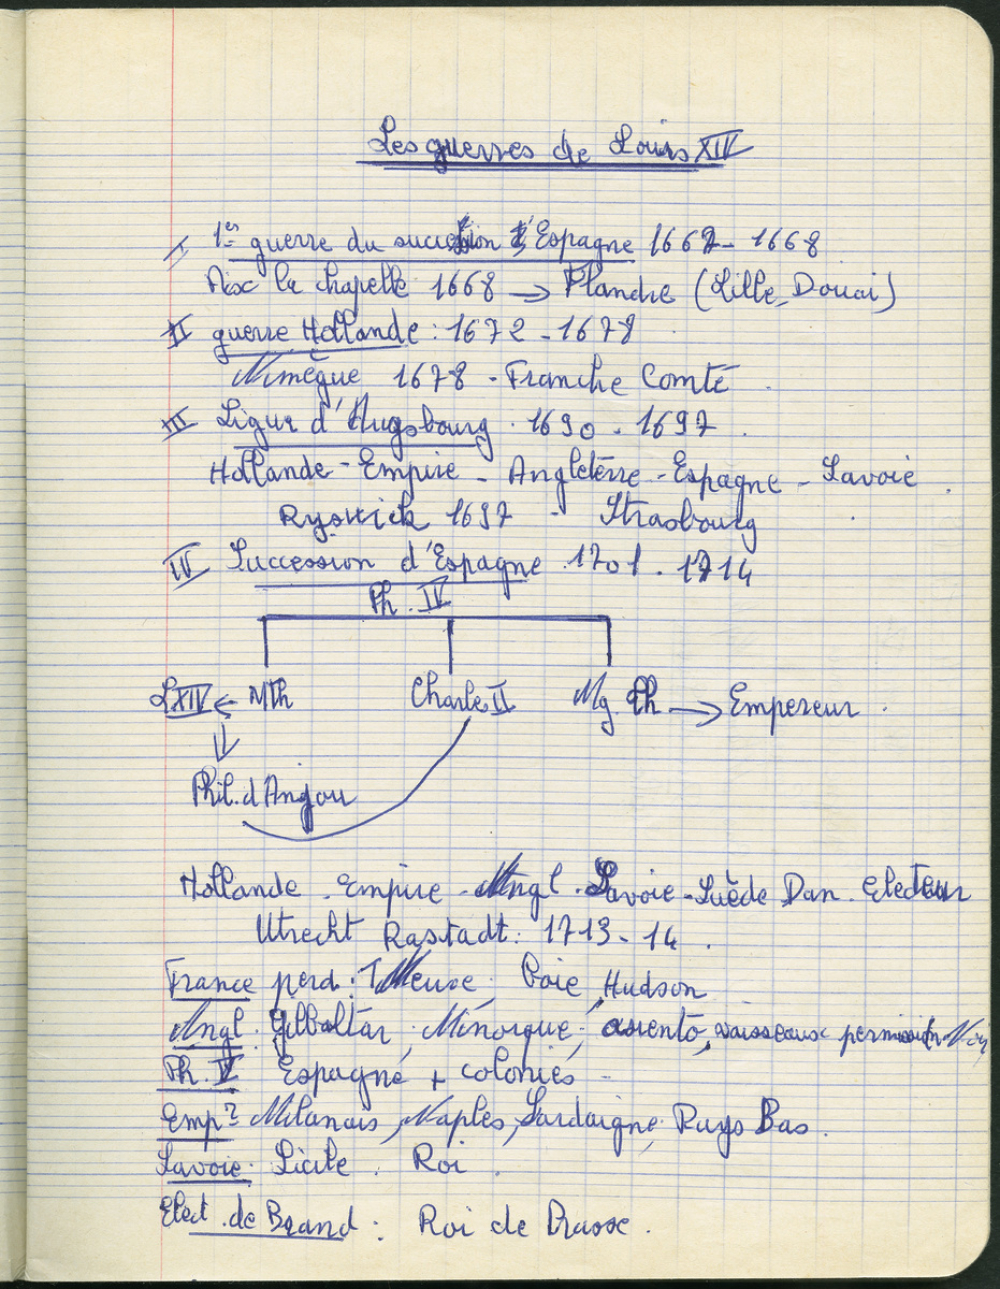 Les guerres de Louis XIV
I 1re guerre du succession d'Espagne 1667 - 1668
Aix la chapelle 1668 → Flandre (Lille, Douai)
II guerre Hollande : 1672 - 1678
Nimègue 1678 - Franche Comté
III Ligue d'Augsbourg . 1690 - 1697 .
Hollande - Empire - Angleterre - Espagne - Savoie .
Ryswick 1697 - Strasbourg
IV Succession d'Espagne 1701 - 1714
Ph. IV
LXIV ← MTh Charles II Mg Th → Empereur .
Phil. d'Anjou
Hollande . Empire - Angl . Savoie - Suède Dan . Electeur
Utrecht Rastadt : 1713 - 14 .
France perd : Baie Hudson
Angl . Gilbaltar . Minorque - asiento, vaisseaux permission
Ph. V Espagne + colonies -
Emp? Milanais, Naples, Sardaigne, Pays Bas .
Savoie . Sicile . Roi .
Elect . de Brand : Roi de Prusse .